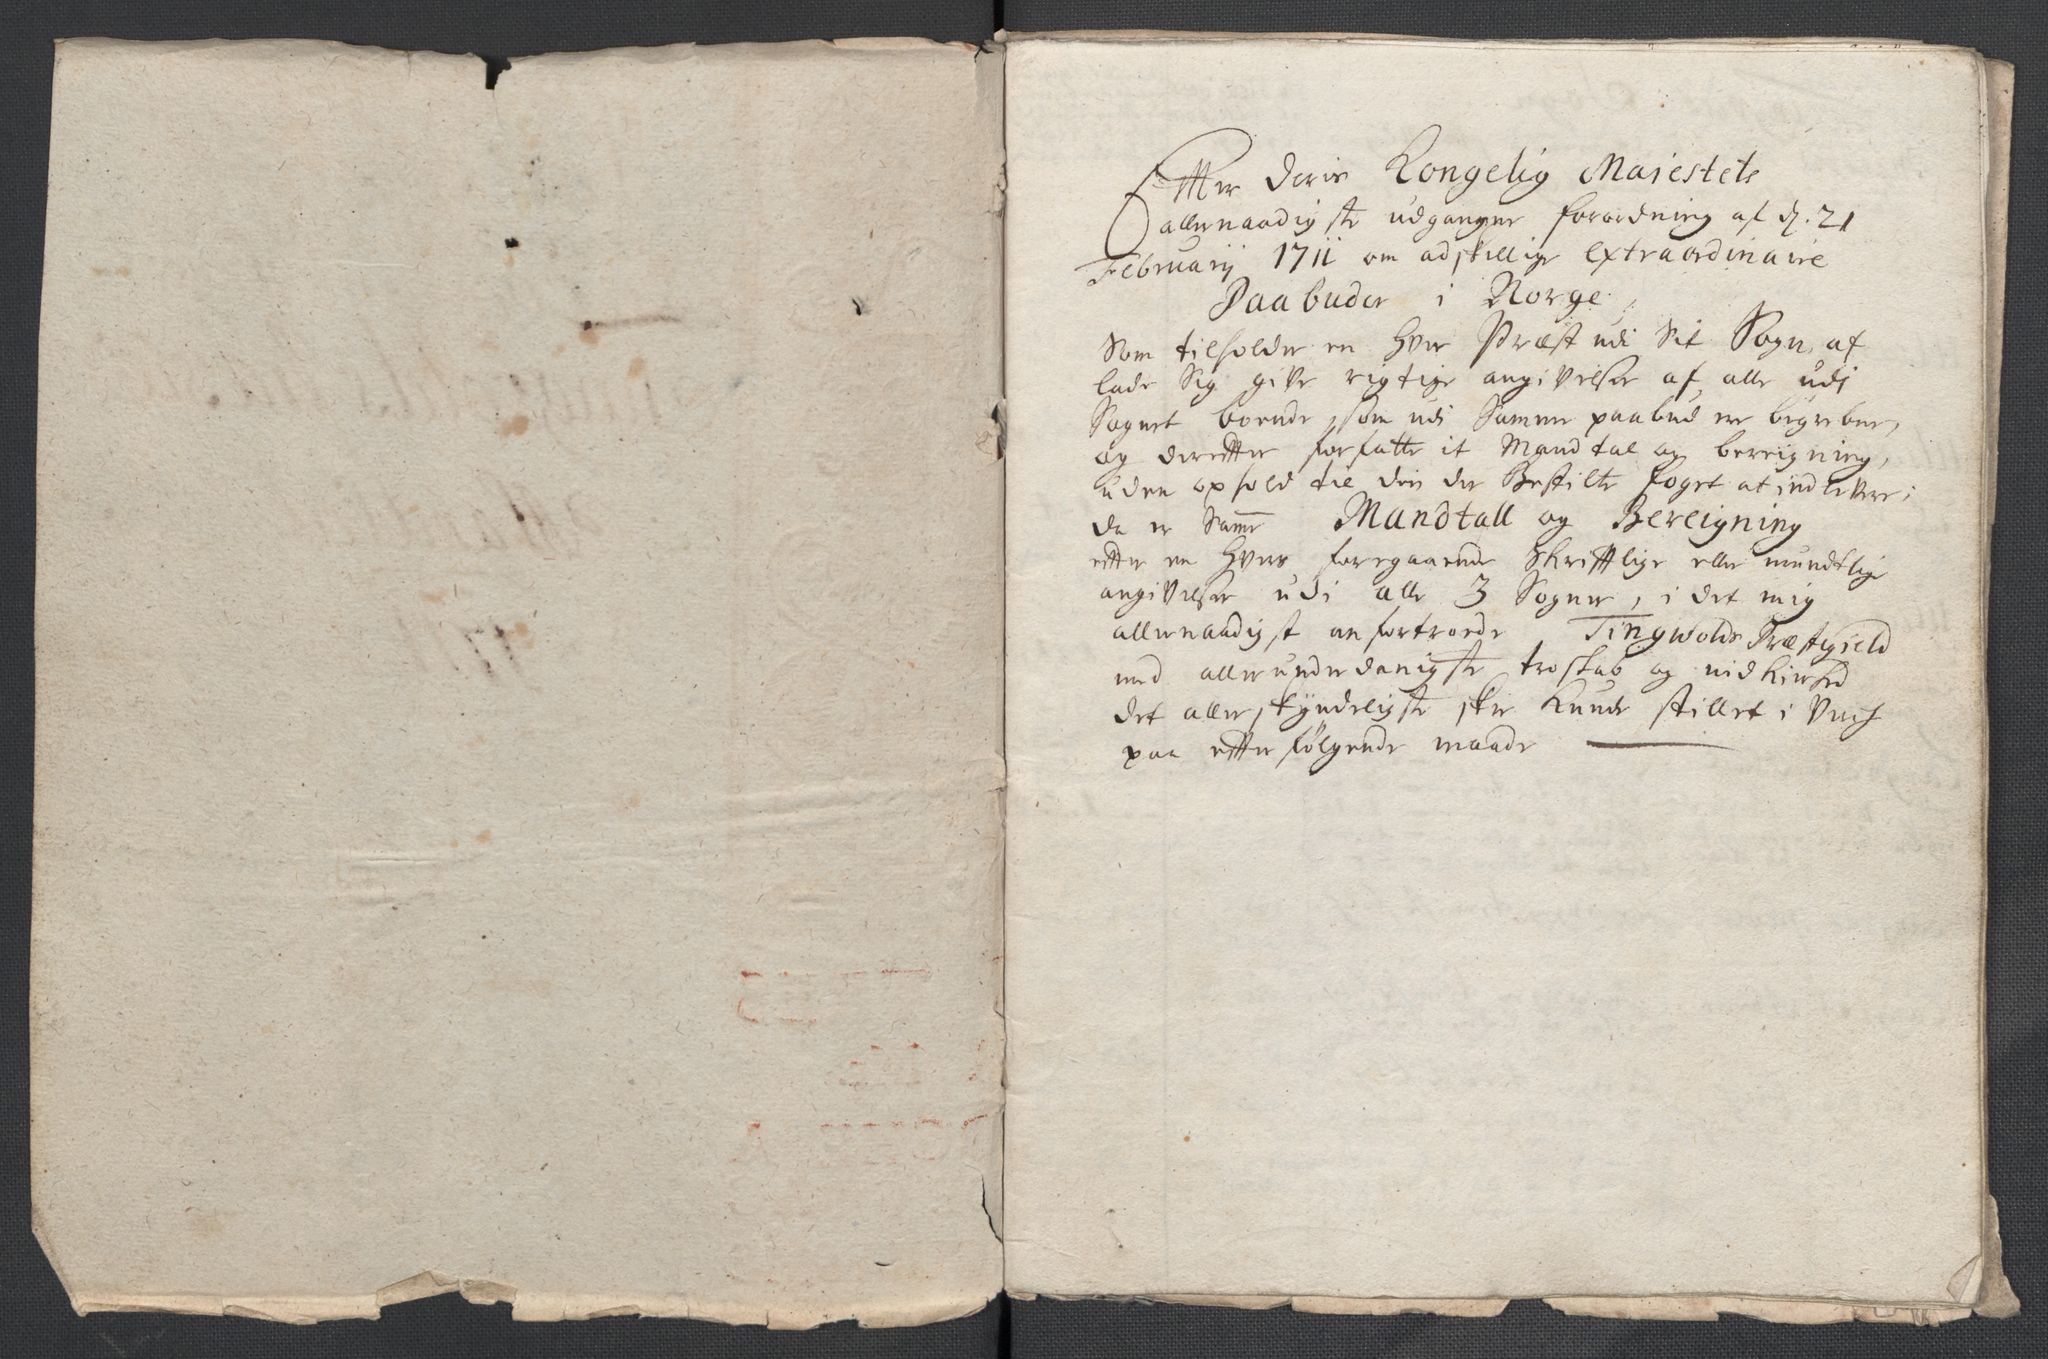 Effter deris Kongelig Maiestets
allernaadigste udgangne forordning af d. 21
Februarij 1711 om adskillige extraordinaire
Paabuder i Norge,
Som tilholder en hver Præst udi Sit Sogn, at
lade Sig give rigtige angivelser af alle udi
Sognet boende, som udi Samme paabud ere begrebne,
og derefter forfatte it Mandtal og bereigning,
uden ophold til den der Bestilte foget at indlevere;
da er Samme Mandtall og Bereigning
effter en hvers foregaaende Skrifftlige eller mundtlige
angivelser udi alle 3 Sogner, i det mig
allernaadigst anfortroede Tingwolds Præstegield
med allerunderdanigste troskab og nidkierhed
det allerskyndeligste skee kunde stillet i verch
paa effterfølgende maade